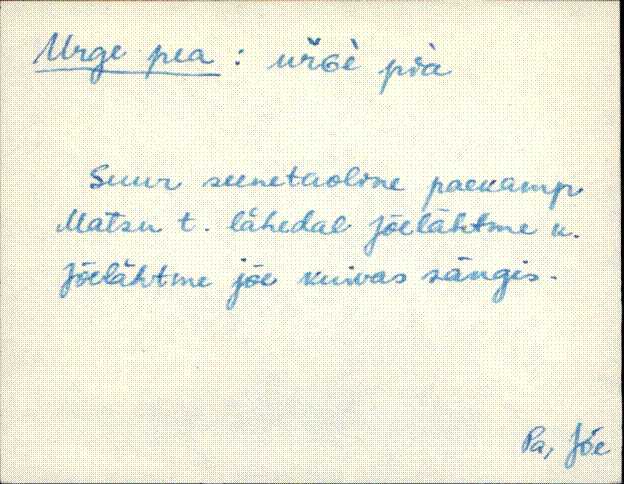 Urge pea : ur̆Gè pi̯à
Suur seenetaoline paekamp
Matsu t. lähedal Jõelähtme k.
Jõelähtme jõe kuivas sängis.
Pa, Jõe